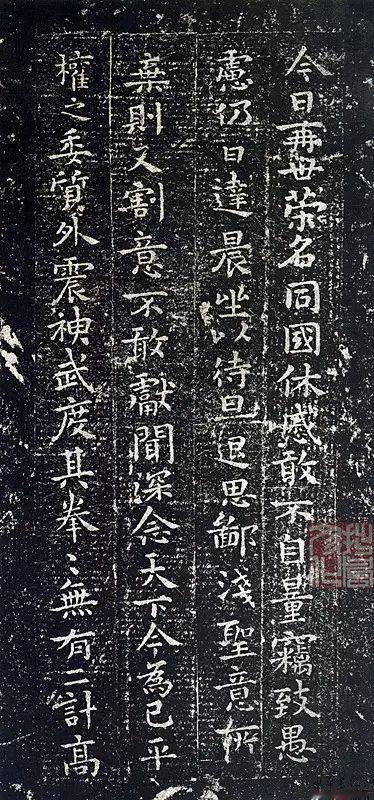 今日再世榮名同國休慼敢不自量竊致愚
慮仍日達晨坐以待旦退思鄙淺聖意所
棄則又割意不敢獻聞深念天下今為已平
權之委質外震神武度其拳〻無有二計高